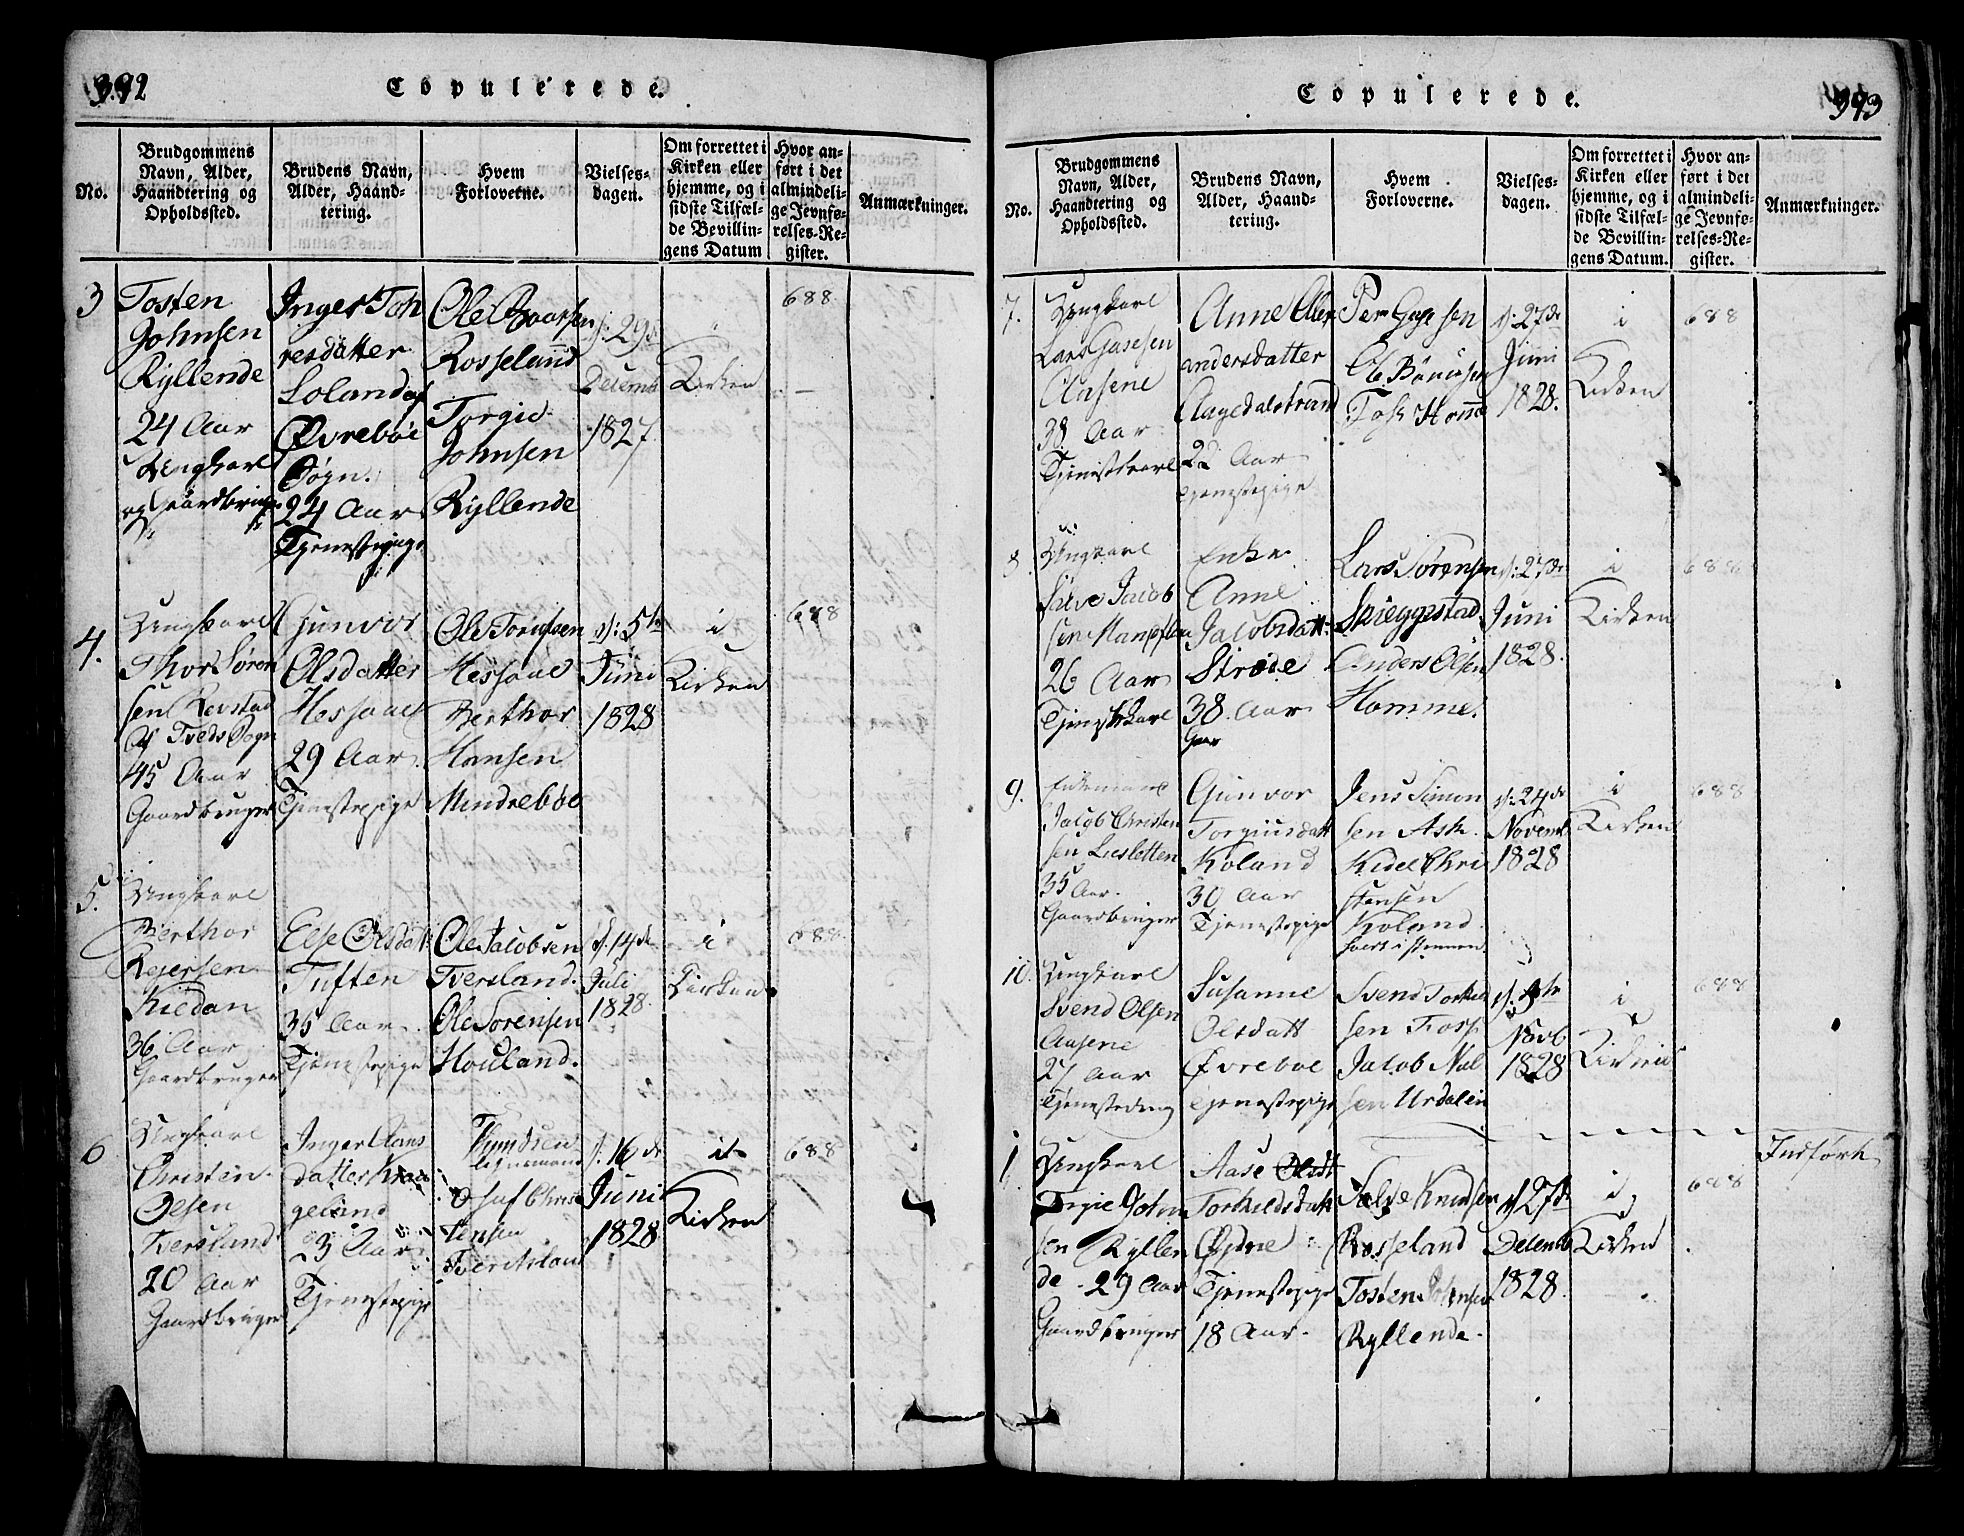 392
Copulerede.
No.
Brudgommens Navn, Alder, Haandtering og Opholdssted.
Brudens Navn, Alder, Haandtering.
Hvem Forloverne.
Vielses-dagen.
Om forrettet i Kirken eller hjemme, og i sidste Tilfælde Bevillingens Datum
Hvor anført i det almindelige Jevnførelses-Register.
Anmærkninger.
3
Tosten
Johnsen
Ryllende
24 Aar
Ungkarl
og Gaardbruger
Inger Toh
resdatter
Soland af
Øvrebøe
Sogn.
24 Aar
Tjenestepige
Ole
Rosseland
Torgie
Johnsen
Ryllende
d: 29d
Decemb
1827
Kirken
688
4.
Ungkarl
Thor Søren
sen Revstad
af Tveds Sogn
45 Aar
Gaardbruger
Gunvor
Olsdatter
Hessaae
29 Aar
Tjenestepige
Ole
Hessaae
Berthor
Hansen
Mindrebøe
d: 5te
Juni
1828
i
Kirken
688
5.
Ungkarl
Berthor
Reiersen
Kiedan
36 Aar
Gaardbruger
Else Olsdatt
Tuften
35 Aar
Tjenestepige
Ole Jacobsen
Tversland.
Ole Sørensen
Houland.
d. 14de
Juli
1828.
i
Kirken
688
6
Ungkarl
Christen
Olsen
Tversland
20 Aar
Gaardbruger
Inger Aans
datter Kraa
geland
23 Aar
Tjenestepige
Lensmand
Christensen
d. 16de
Juni
1828
i
Kirken
688
393
Copulerede.
No.
Brudgommens Navn, Alder, Haandtering og Opholdssted.
Brudens Navn, Alder, Haandtering.
Hvem Forloverne.
Vielses-dagen.
Om forrettet i Kirken eller hjemme, og i sidste Tilfælde Bevillingens Datum.
Hvor anført i det almindelige Jevnførelses-Register.
Anmærkninger.
7.
Ungkarl
Lars
Aasene
38 Aar
Tjenistkarl
Anne
andersdatter
Aagedalstrand
22 Aar
Tjenestepige
Per
d: 27de
Juni
1828.
i
Kirken
688
8
Ungkarl
Salve Jacob
sen
26 Aar
Tjenstkarl
Enke
Anne
Jacobsdatt:
Strøde
38 Aar
Lars Sørensen
Skieggestad
Anders Olsen
Homme.
d: 27de
Juni
1828.
i
Kirken
688
9.
Enkemand
Jacob Christen
sen Liesletten
35 Aar.
Gaardbruger
Gunvor
Torgiusdatt
Koland
30 Aar
Tjenestepige
Jens Simon
sen Ask.
Kidel Chri
stensen
Koland.
d: 24de
Novemb
1828
i
Kirken
688
10.
Ungkarl
Svend Olsen
Aasene
27 Aar
Tjenestedreng
Susanne
Olsdatt
Øvreboe
Tjenestepige
Svend Torkild
sen Foss
Jacob Nul
sen Urdalen
Novb
1828
i
Kirken
688
Ungkarl
Torgie John
sen Ryllen
de 29 Aar
Gaardbruger
Aase
Torkildsdatt
Øydne
Tjenestepige
18 Aar.
Salve Knudsen
Rosseland
Tosten Johnsen
Ryllende.
d 27de
Decemb
1828.
i
Kirken
688
Indført